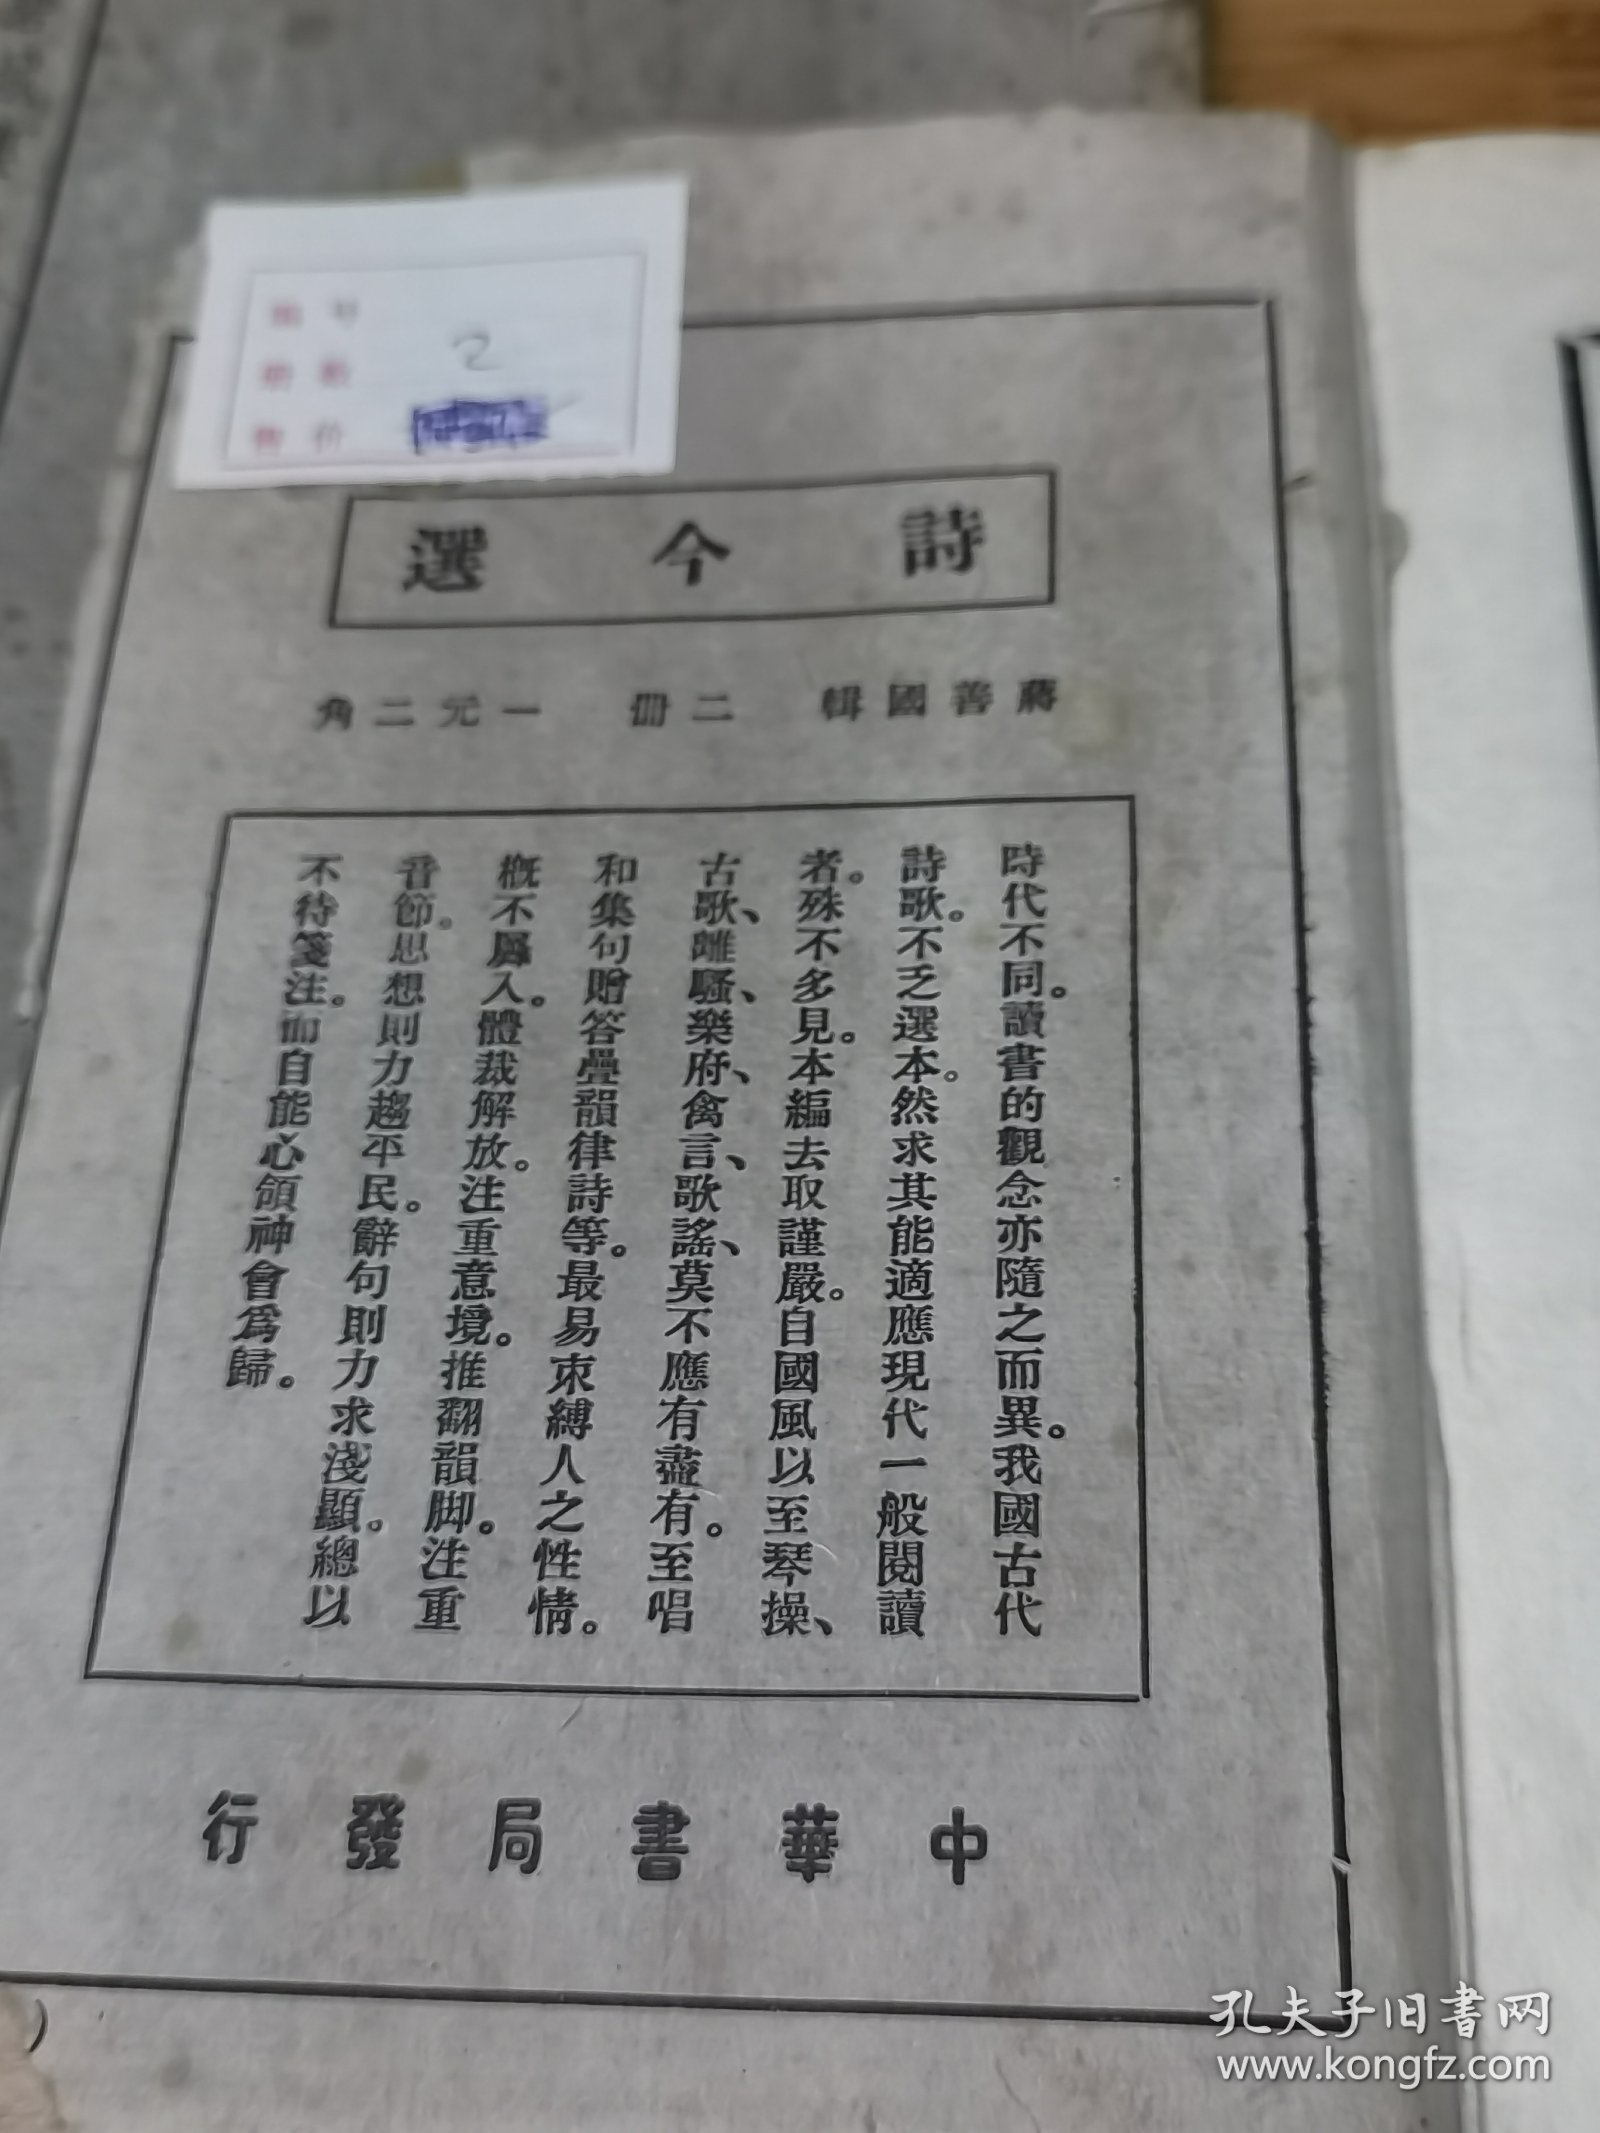 编号
册数
2
售价
詩今選
蔣善國輯 二冊 一元二角
時代不同。讀書的觀念亦隨之而異。我國古代
詩歌。不乏選本。然求其能適應現代一般閱讀
者。殊不多見。本編去取謹嚴。自國風以至琴操、
古歌、離騷、樂府、禽言、歌謠、莫不應有盡有。至唱
和集句贈答疊韻律詩等。最易束縛人之性情。
概不羼入。體裁解放。注重意境。推翻韻脚。注重
音節。思想則力趨平民。辭句則力求淺顯。總以
不待箋注。而自能心領神會爲歸。
中華書局發行
孔夫子旧书网
www.kongfz.com